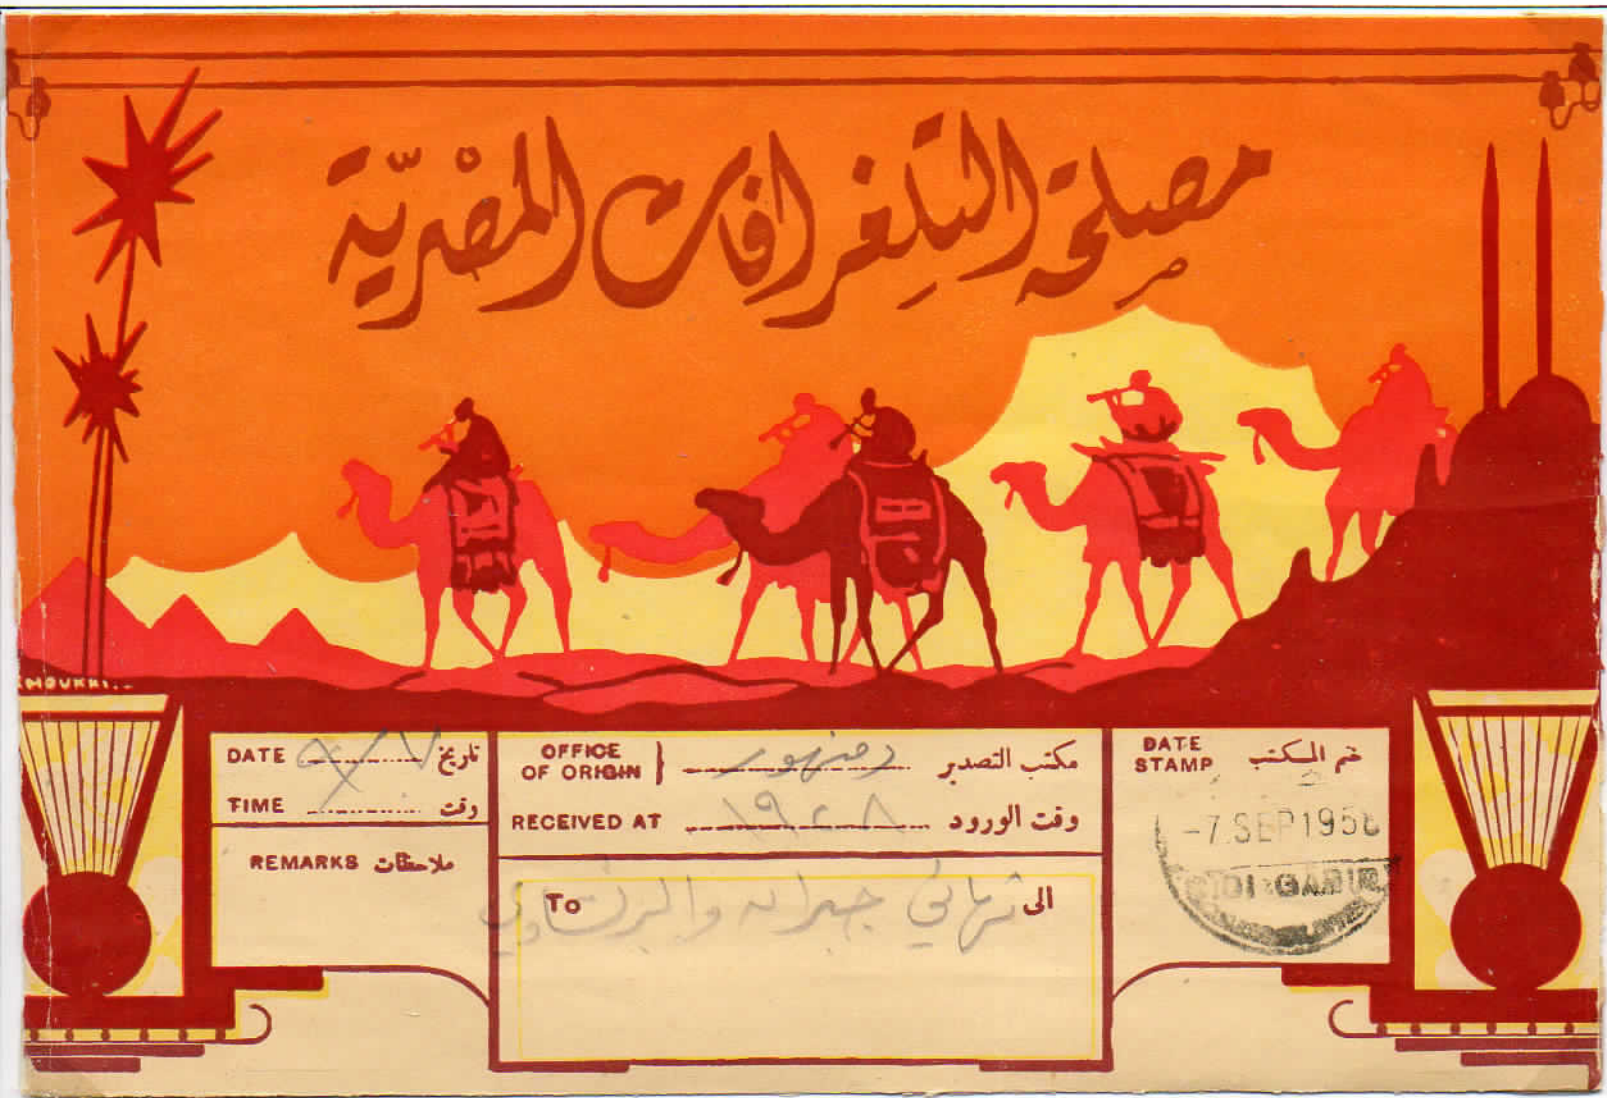 مصلحة التلغرافات المصريّة
DATE ٧/ تاريخ
TIME وقت
REMARKS ملاحظات
OFFICE OF ORIGIN دمنهور مكتب التصدير
RECEIVED AT وقت الورود
To الى
تهاني جبرانه
DATE STAMP ختم المكتب
-7.SEP195
SIDI GABER